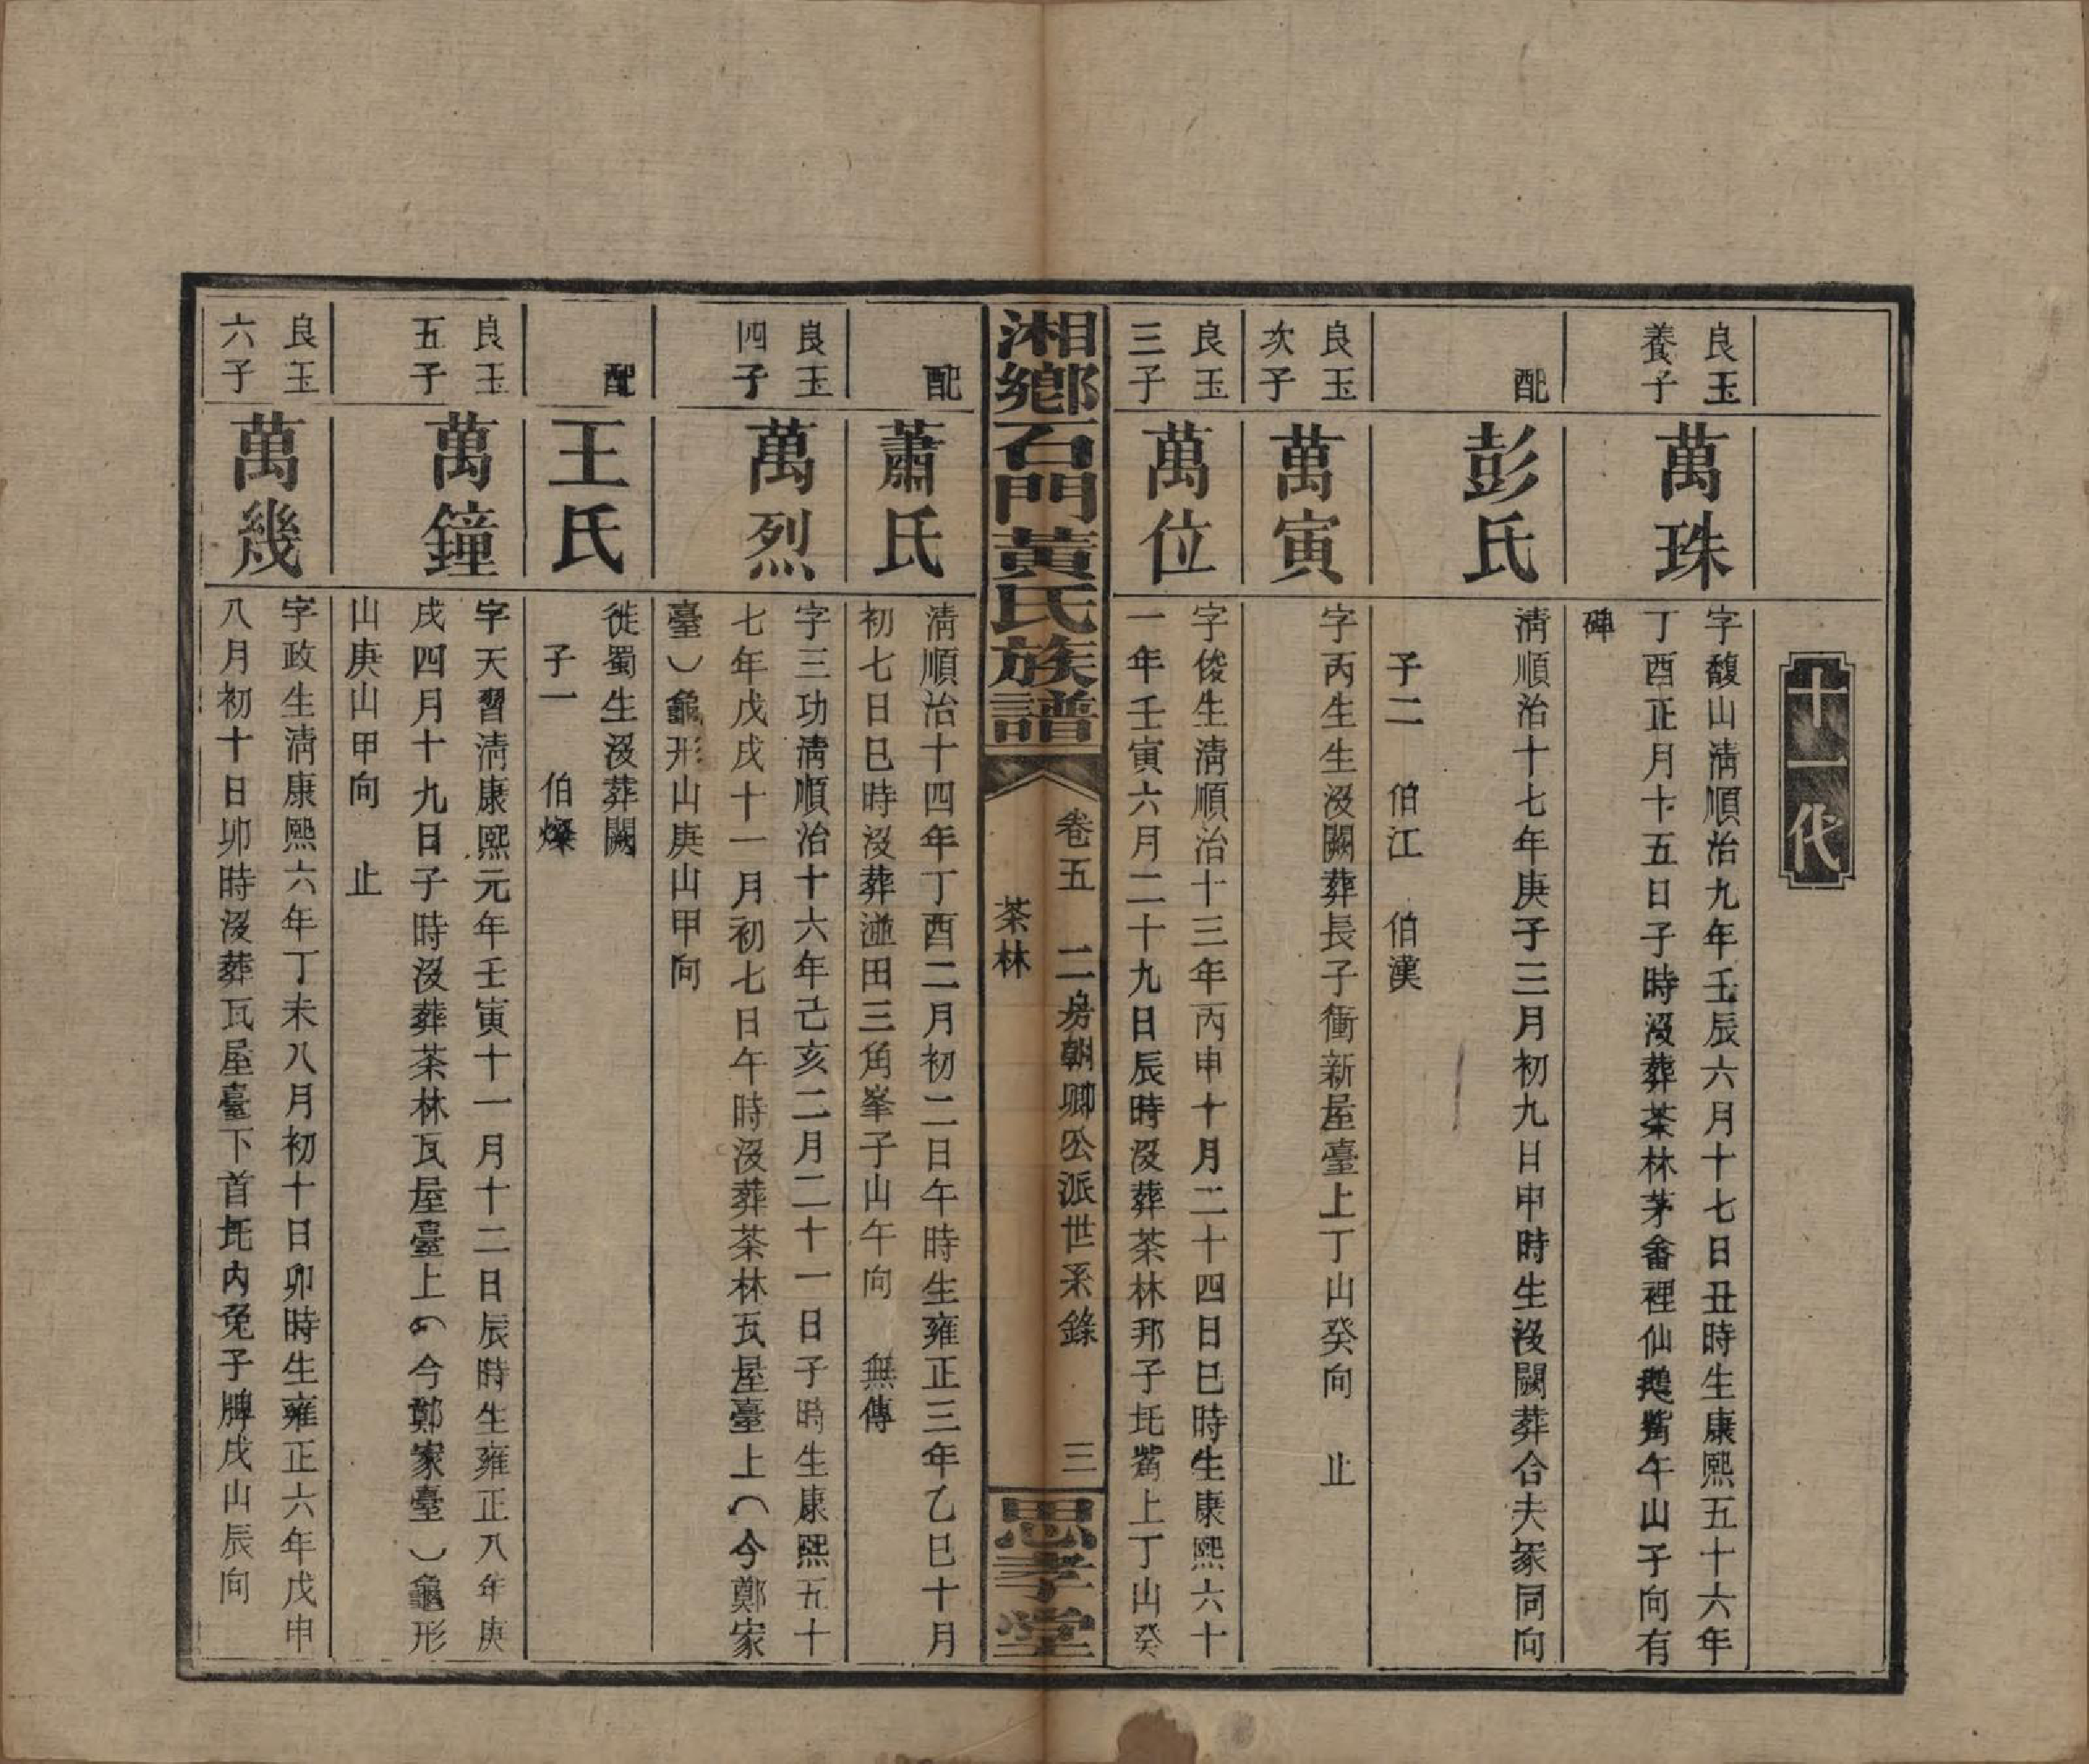 十一代
良玉
養子
萬珠
字馥山淸順治九年壬辰六月十七日丑時生康熙五十六年
丁酉正月十五日子時沒葬茶林茅畬裡仙鵝觜午山子向有
碑
配
彭氏
淸順治十七年庚子三月初九日申時生沒闕葬合夫冢同向
子二 伯江 伯漢
良玉
次子
萬寅
字丙生生沒闕葬長子衝新屋臺上丁山癸向 止
良玉
三子
萬位
字俊生淸順治十三年丙申十月二十四日巳時生康熙六十
一年壬寅六月二十九日辰時沒葬茶林邦子坵觜上丁山癸
湘鄉石門黃氏族譜
卷五 二房朝卿公派世系錄 三
茶林
思孝堂
配
蕭氏
淸順治十四年丁酉二月初二日午時生雍正三年乙巳十月
初七日巳時沒葬湴田三角峯子山午向 無傳
良玉
四子
萬烈
字三功淸順治十六年己亥二月二十一日子時生康熙五十
七年戊戌十一月初七日午時沒葬茶林瓦屋臺上(今鄭家
臺)龜形山庚山甲向
配
王氏
徙蜀生沒葬闕
子一 伯燦
良玉
五子
萬鐘
字天習淸康熙元年壬寅十一月十二日辰時生雍正八年庚
戌四月十九日子時沒葬茶林瓦屋臺上(今鄭家臺)龜形
山庚山甲向 止
良玉
六子
萬幾
字政生淸康熙六年丁未八月初十日卯時生雍正六年戊申
八月初十日卯時沒葬瓦屋臺下首坵內兔子牌戌山辰向